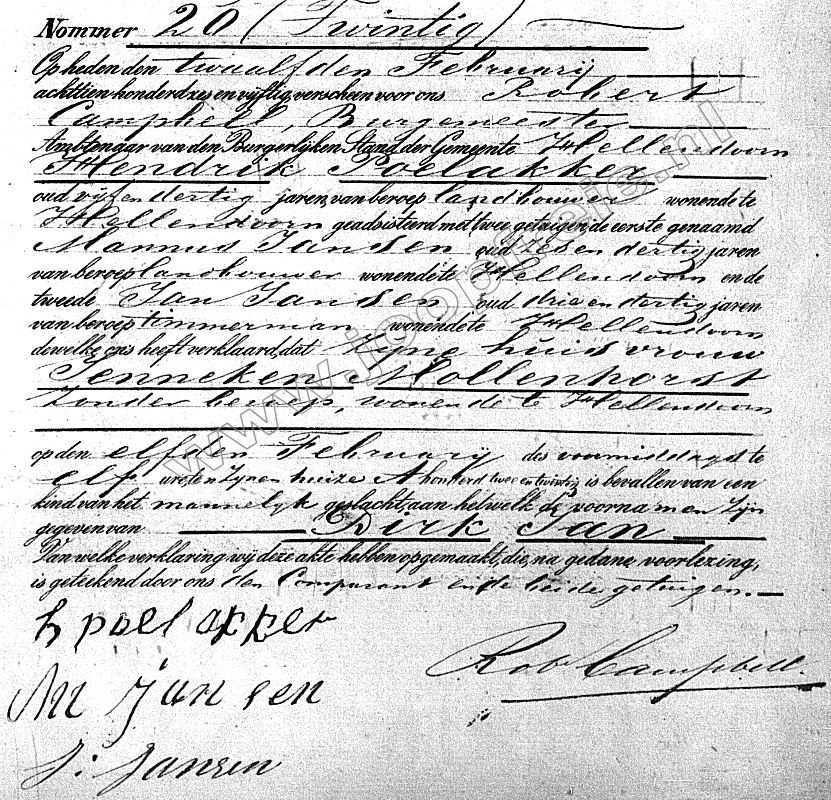 Nommer 20 (Twintig)
Op heden den twaalfden Februarij
achttien honderd zes en vijftig, verscheen voor ons Robert
Campbell, Burgemeester
Ambtenaar van den Burgerlijken Stand der Gemeente Hellendoorn
Hendrik Poelakker
oud vijf en dertig jaren, van beroep landbouwer wonende te
Hellendoorn geadsisteerd met twee getuigen, de eerste genaamd
Mannus Jansen oud zes en dertig jaren
van beroep landbouwer wonende te Hellendoorn en de
tweede Jan Jansen oud drie en dertig jaren
van beroep timmerman wonende te Hellendoorn
dewelke ons heeft verklaard, dat zijne huisvrouw
Jenneken Mollenhorst
zonder beroep, wonende te Hellendoorn
op den elfden Februarij des voormiddags te
elf ure ten zijnen huize A honderd twee en twintig is bevallen van een
kind van het mannelijk geslacht, aan hetwelk de voornamen zijn
gegeven van Dirk Jan
Van welke verklaring wij deze akte hebben opgemaakt, die, na gedane voorlezing,
is geteekend door ons den Comparant en de beide getuigen.
h poel akker
Rob Campbell
M Jansen
J: Jansen
www.joopleie.nl